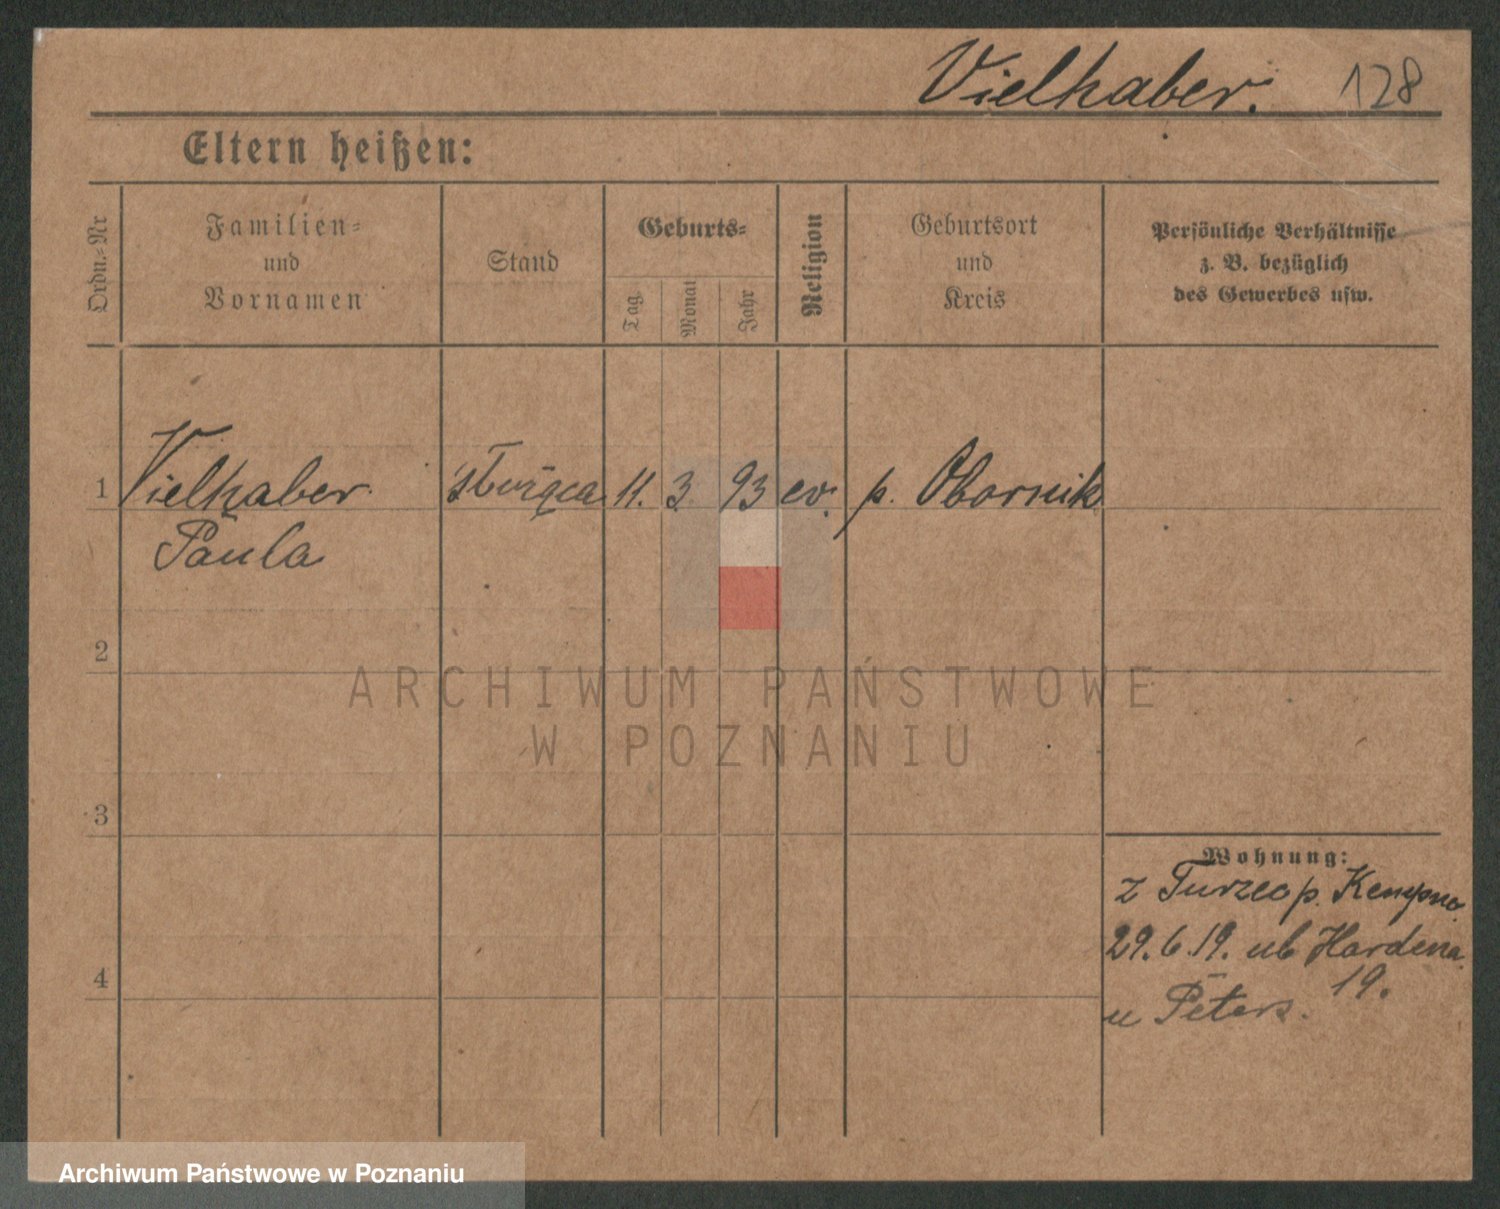 Vielhaber. 128
Eltern heißen:
Ordn.=Nr
Familien=
und
Vornamen
Stand
Geburts=
Tag
Monat
Jahr
Religion
Geburtsort
und
Kreis
Persönliche Verhältnisse
z. B. bezüglich
des Gewerbes usw.
1 Vielhaber 11. 3. 93 ev. p. Obornik
Paula
2
3
4
Wohnung:
z p. Kempno
29. 6. 19. ul. Hardena
19.
u Peters.
ARCHIWUM PAŃSTWOWE
W POZNANIU
Archiwum Państwowe w Poznaniu